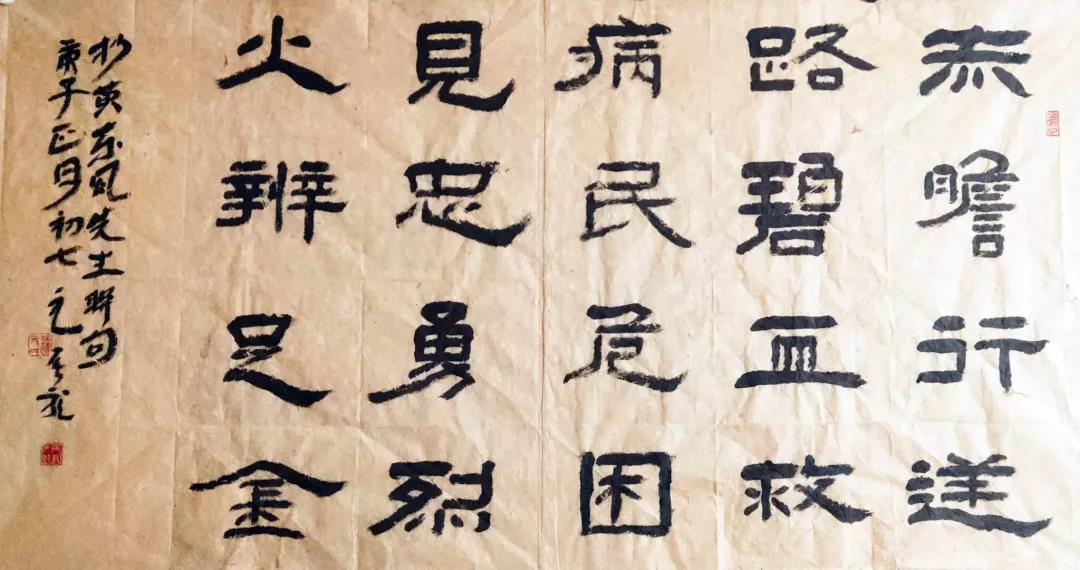 赤膽行逆
路碧血救
病民危困
見忠勇烈
火辨足金
抄黄东风先生联句
庚子正月初七